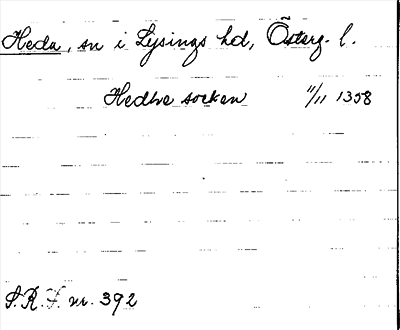 Heda, sn i Lysings hd, Österg. l.
Hedhe socken 11/11 1358
S.R.F. nr. 392